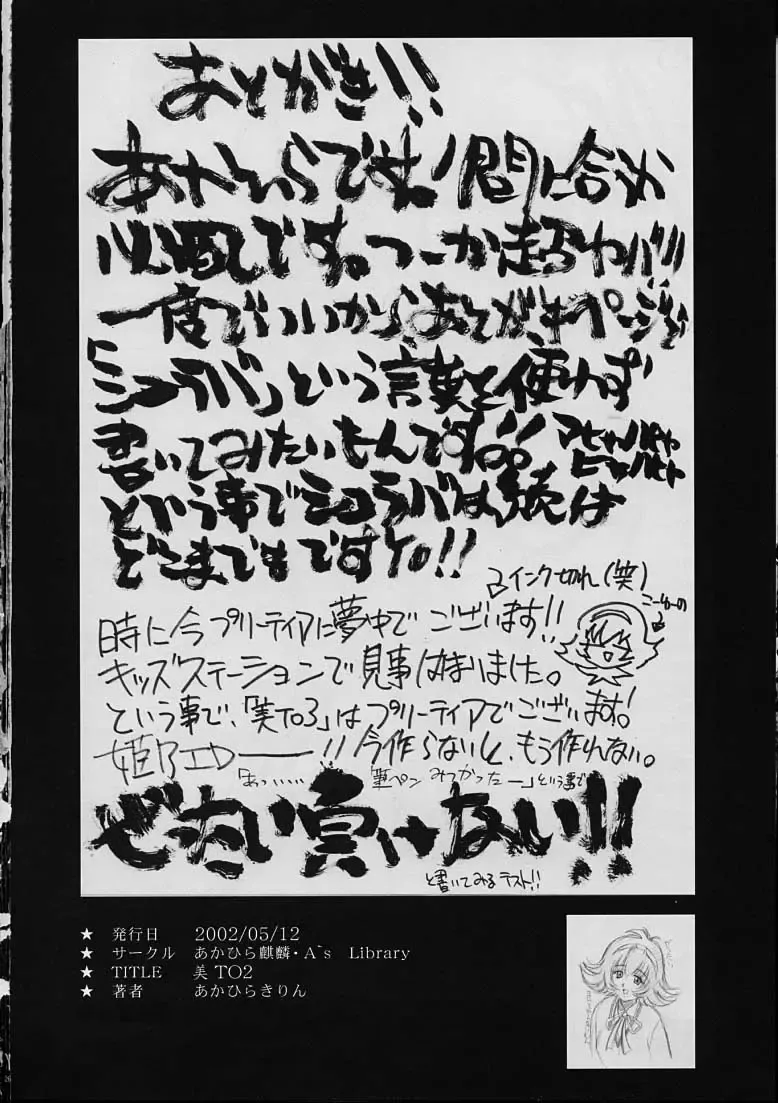 あとがき!!
あかひらです。!間に合うか
心配です。つーか超ヤバ!!
一度でいいから、あとがきページで
「シュラバ」という言葉を使わず
書いてみたいもんです!!
アヒャハヒャ
ヒャハハ
という事でシュラバは続くは
どこまでもですYO!!
インク切れ(笑)
時に今プリーティアに夢中でございます!!
キッズステーションで見事はまりました。
という事で、「美TO3」はプリーティアでございます!
姫 ー!!今作らないと、もう作れない。
「あっ…… 筆ペン みつかったー」というまで
ぜったい負けない!!
と書いてみるテスト!!
★ 発行日 2002/05/12
★ サークル あかひら麒麟・A`s Library
★ TITLE 美 TO2
★ 著者 あかひらきりん
26